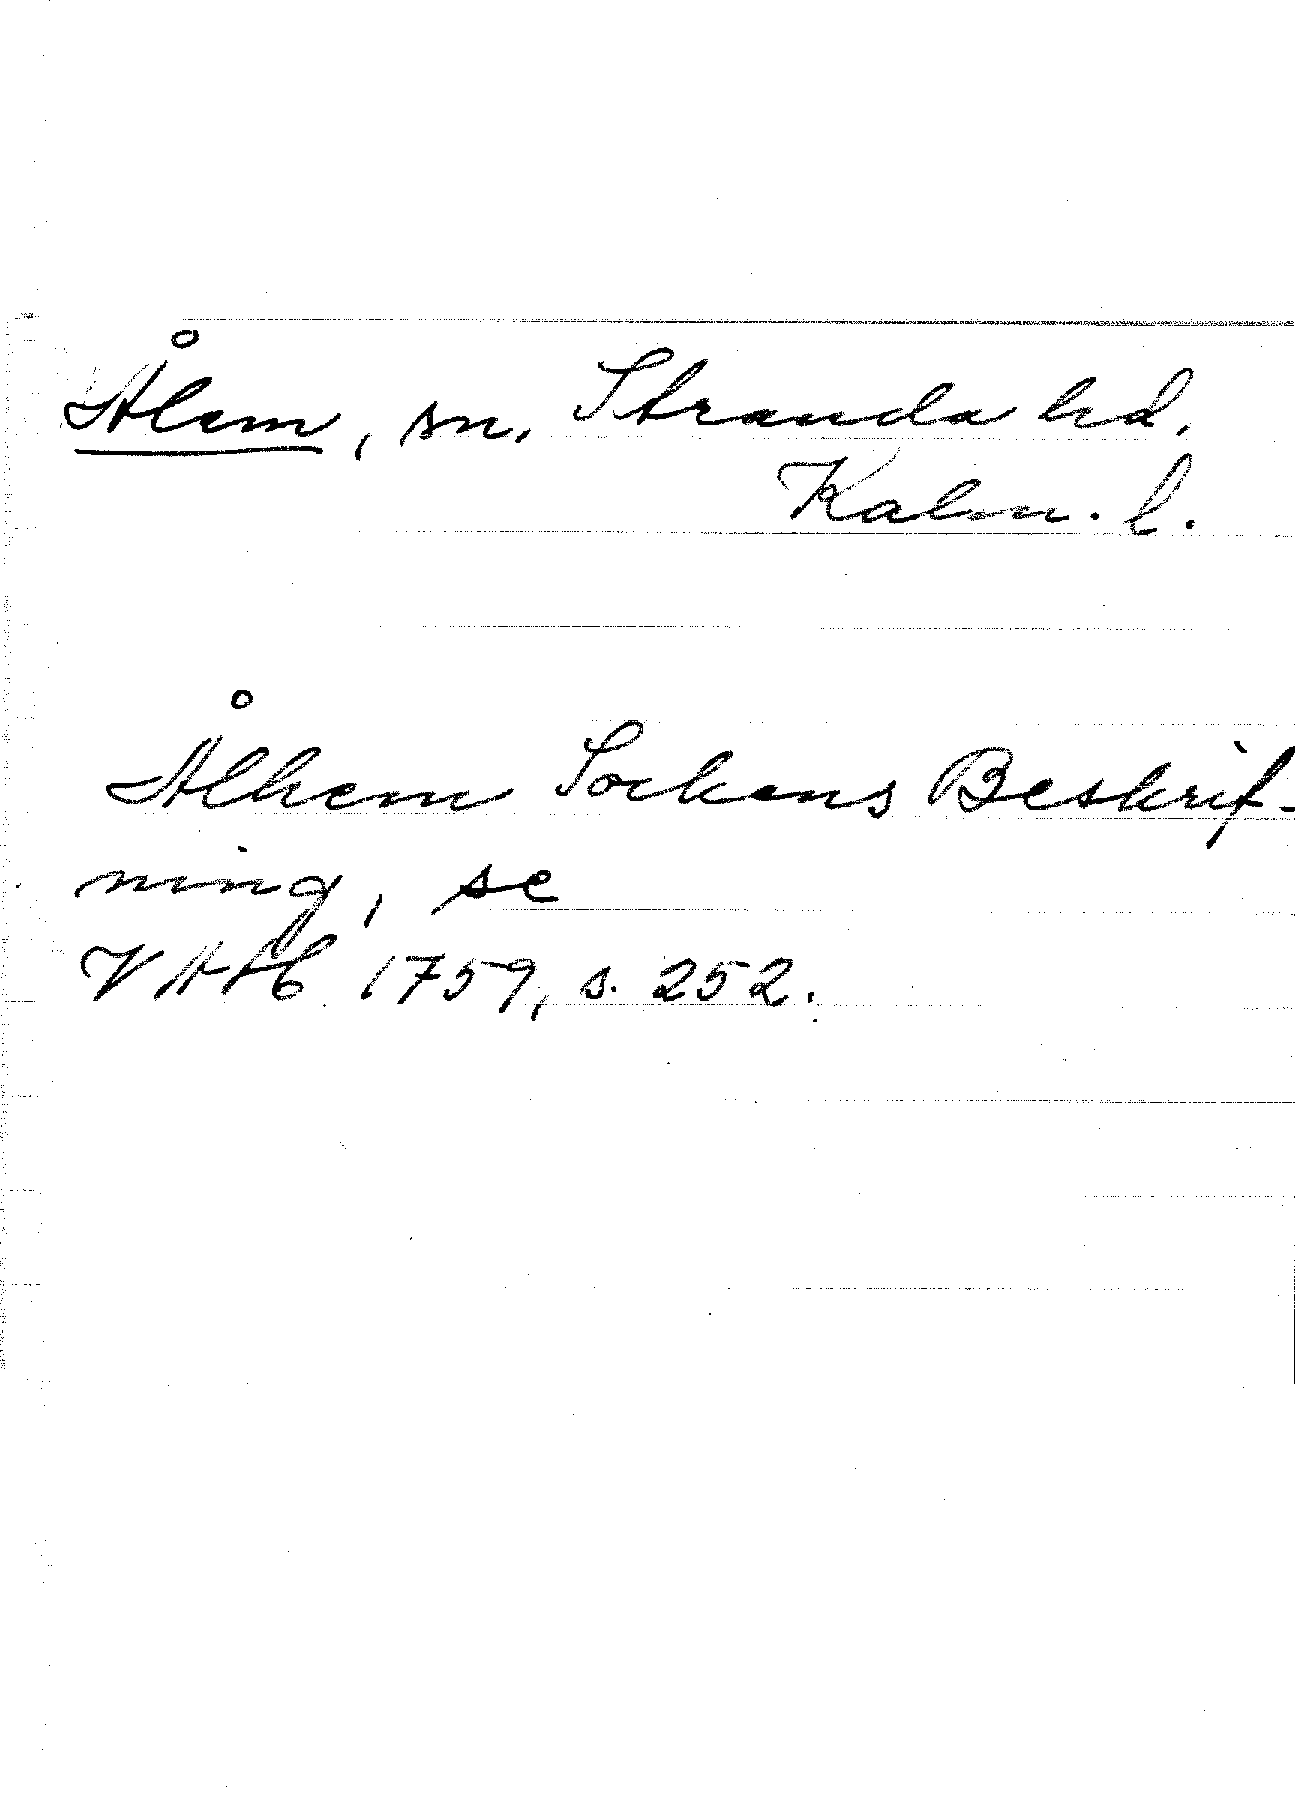 Ålem, sn. Stranda hd.
Kalm. l.
Ålhem Sockens Beskrif-
ning, se
VAH 1759, s. 252.